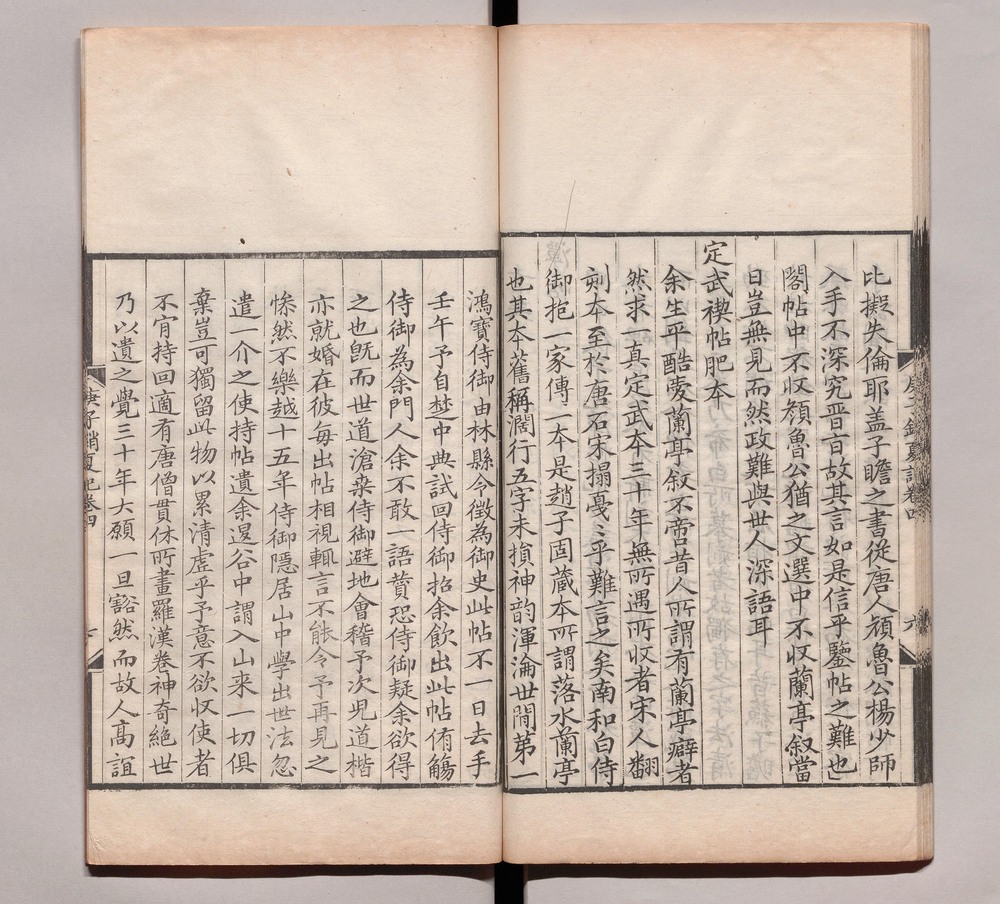 比擬失倫耶盖子瞻之書從唐人頳魯公楊少師
入手不深究晋百故其言如是信乎鑒帖之難也
閣帖中不収頳魯公猶之文選中不収蘭亭叙當
日豈無見而然政難與世人深語耳
定武禊帖肥本
余生平酷愛蘭亭叙不啻昔人所謂有蘭亭癖者
然求一真定武本三十年無所遇所收者宋人翻
刻本至於唐石宋搨戞〻乎難言之矣南和白侍
御抱一家傳一本是趙子固蔵本所謂落水蘭亭
也其本舊稱濶行五字未損神韵渾淪世間第一
鴻寶侍御由林縣令徴為御史此帖不一日去手
壬午予自楚中典試回侍御招余飲出此帖侑觴
侍御為余門人余不敢一語賛恐侍御疑余欲得
之也既而世道滄桒侍御避地會稽予次児道楷
亦就婚在彼毎出帖相視輒言不能令予再見之
惨然不樂越十五年侍御隱居山中學出世法忽
遣一介之使持帖遺余退谷中謂入山来一切俱
棄豈可獨留此物以累清虚乎予意不欲収使者
不肯持回適有唐僧貫休所畫羅漢卷神奇絶世
乃以遺之覺三十年大願一旦豁然而故人高誼
庚子銷夏記卷四
六
庚子銷夏記卷四
七